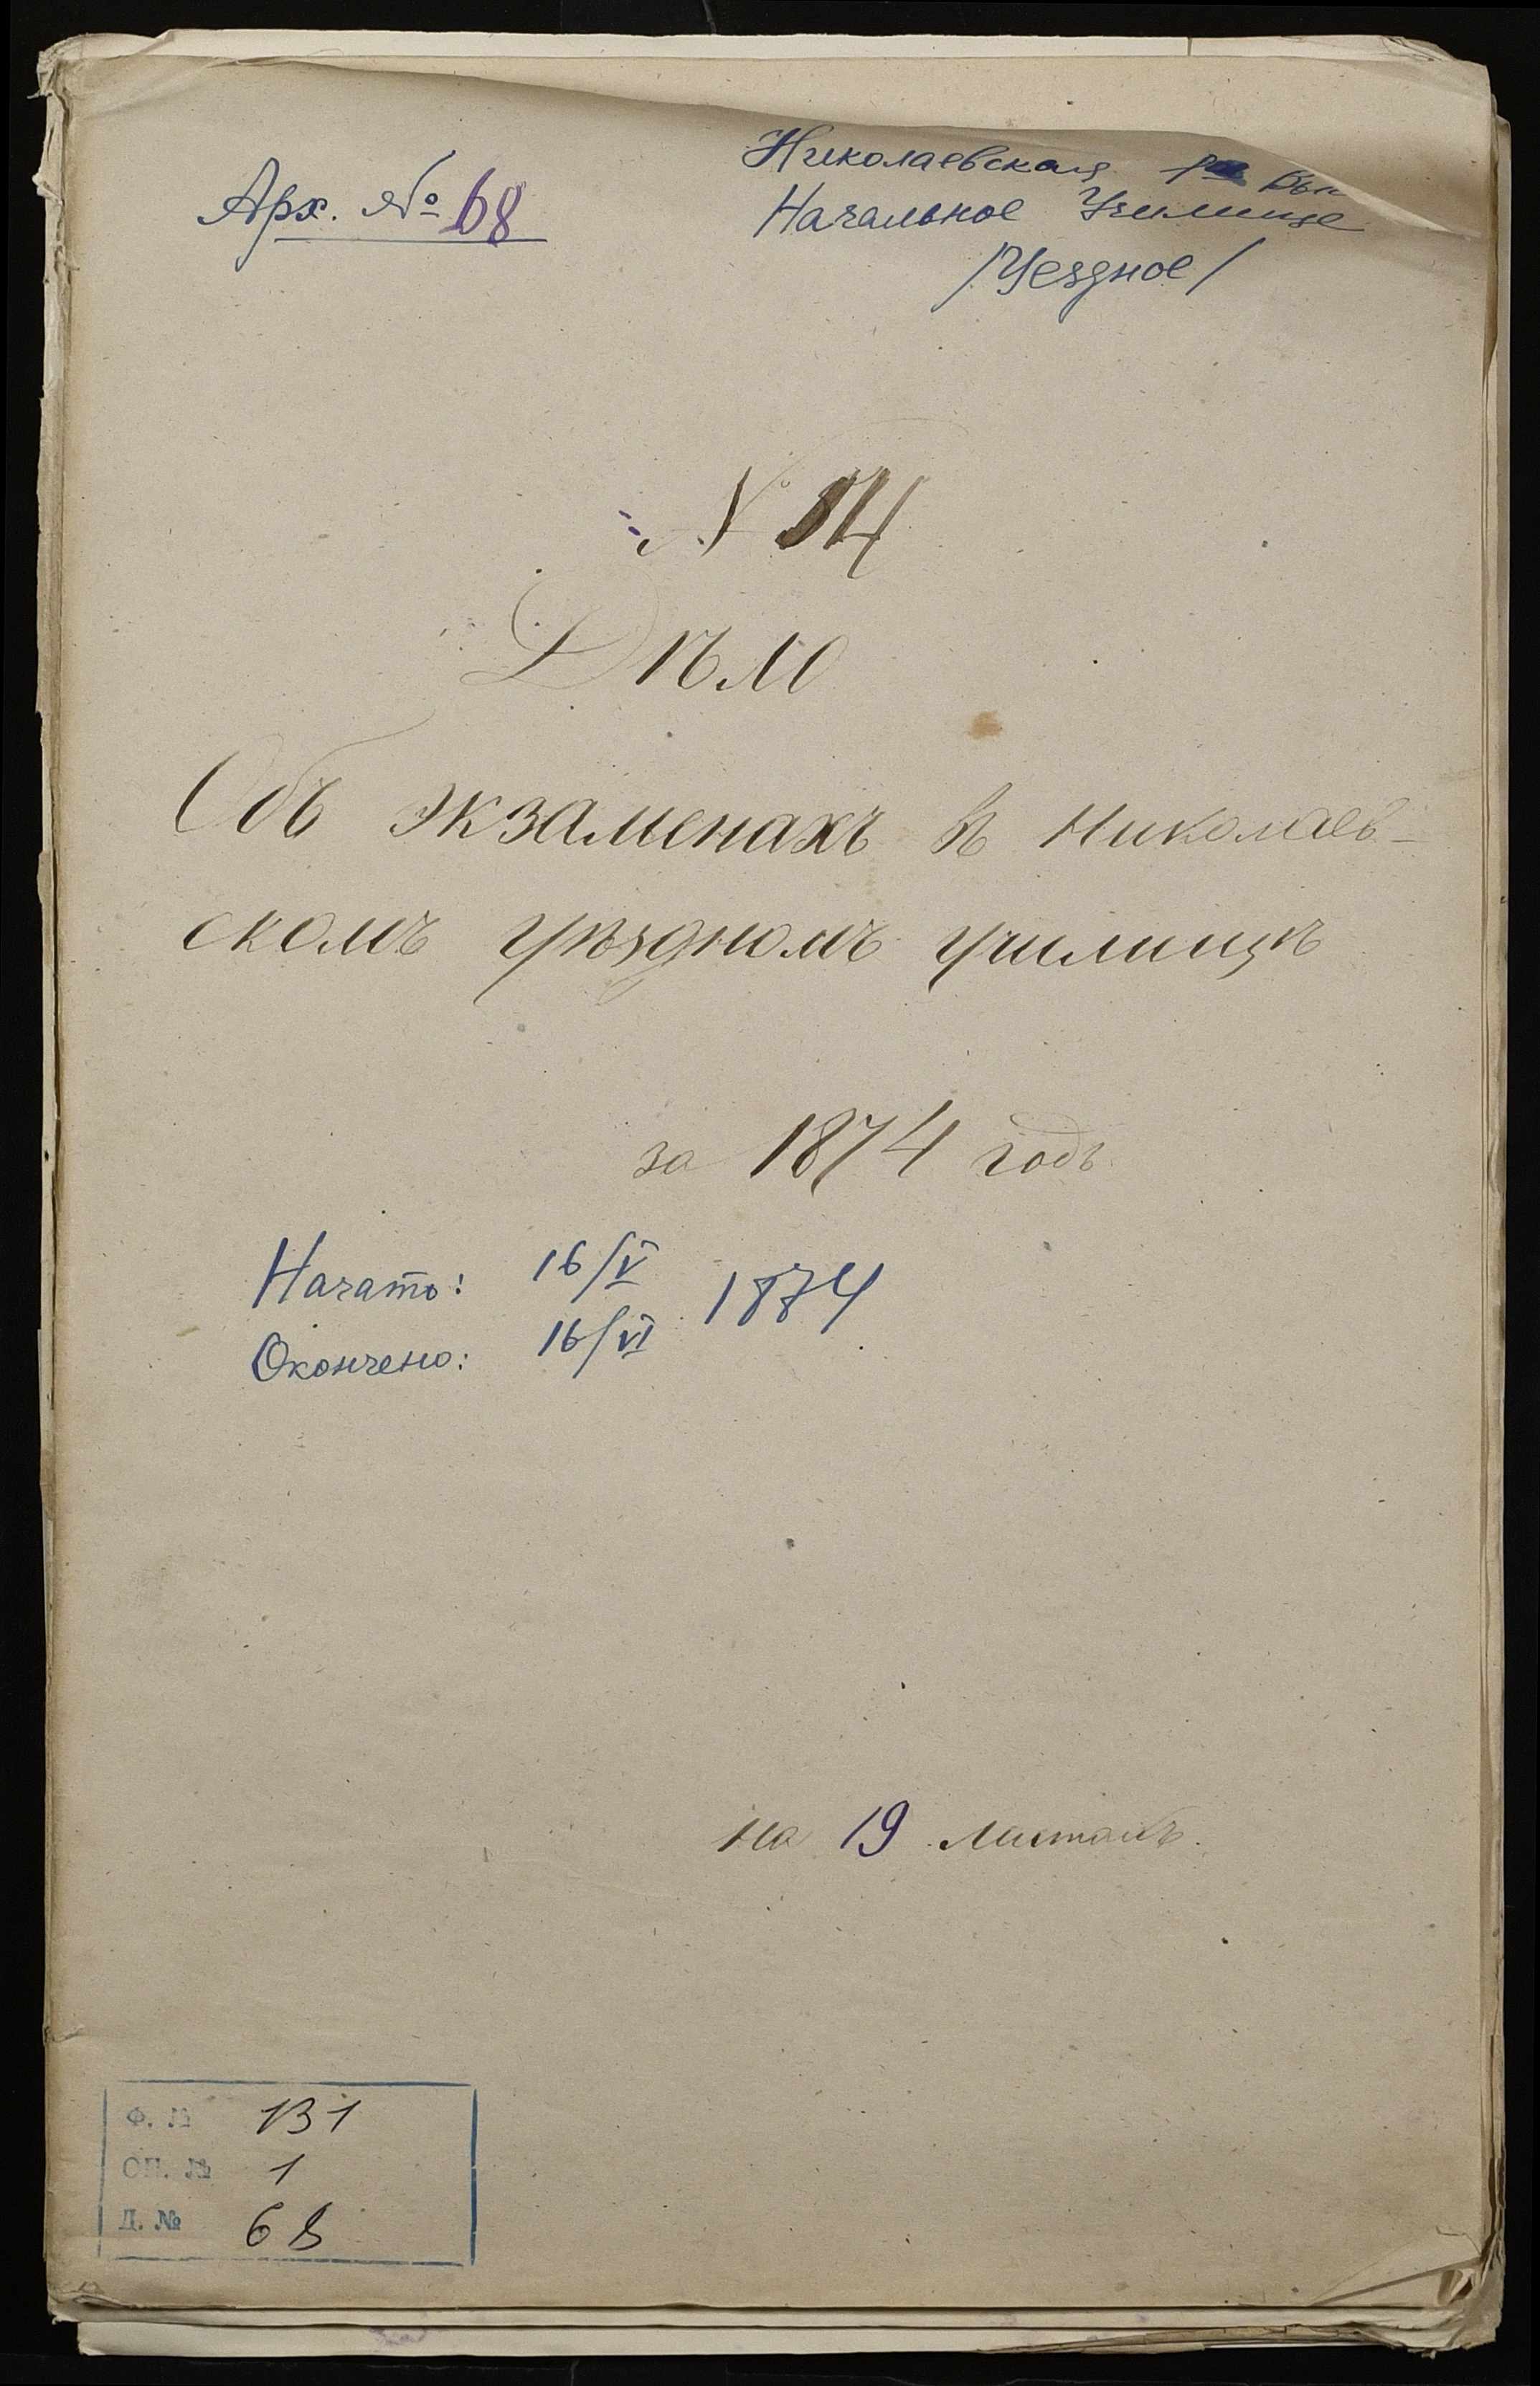 Арх. № 68
Николаевская
Начальное Училище
/Уездное/
Дѣло
Объ экзаменахъ въ Николаев-
скомъ уѣздномъ училищѣ
за 1874 годъ.
Начато: 16/V 1874
Окончено: 16/VI
на 19 листахъ.
Ф. № 131
ОП. № 1
Д. № 68